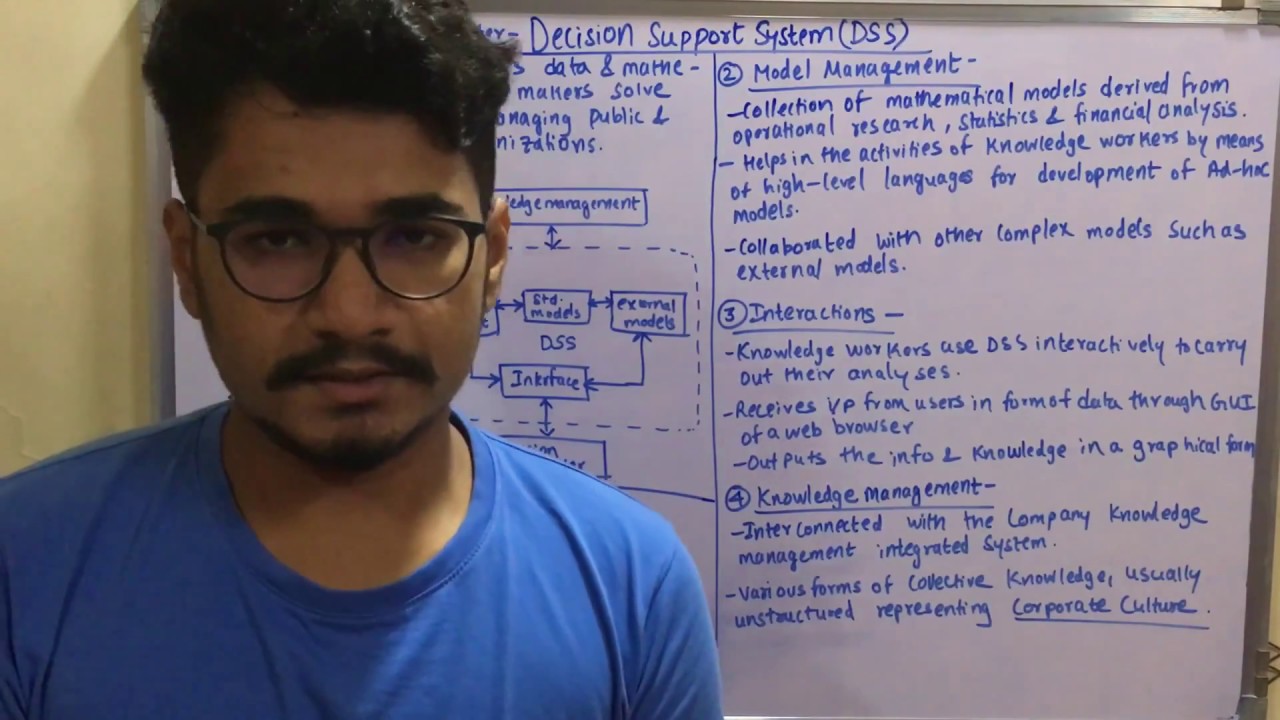 Decision Support System (DSS)
data & mathe-
makers solve
public &
ement
Std.
models
external
models
DSS
Interface
② Model Management -
- Collection of mathematical models derived from
operational research, Statistics & financial analysis.
- Helps in the activities of Knowledge workers by means
of high-level languages for development of Ad-hoc
models.
- Collaborated with other complex models such as
external models.
③ Interactions -
- Knowledge workers use DSS interactively to carry
out their analyses.
- Receives I/P from users in form of data through GUI
of a web browser
- Outputs the info & Knowledge in a graphical form
④ Knowledge management -
- Interconnected with the Company Knowledge
management integrated system.
- Various forms of Collective Knowledge, usually
unstructured representing Corporate Culture.